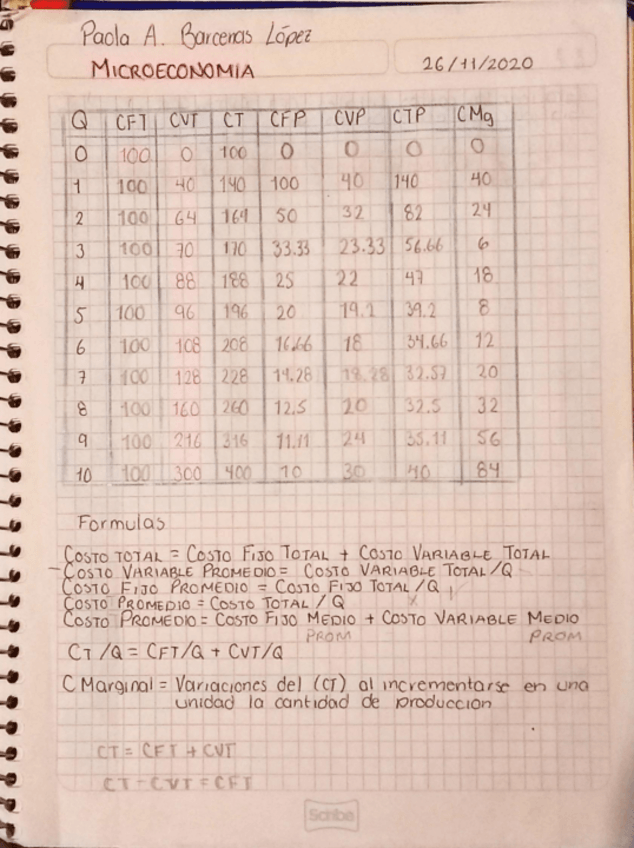 Paola A. Barcenas López
MICROECONOMIA 26/11/2020
Q CFT CVT CT CFP CVP CTP CMg
0 100 0 100 0 0 0 0
1 100 40 140 100 40 140 40
2 100 64 164 50 32 82 24
3 100 70 170 33.33 23.33 56.66 6
4 100 88 188 25 22 47 18
5 100 96 196 20 19.2 39.2 8
6 100 108 208 16.66 18 34.66 12
7 100 128 228 14.28 18.28 32.57 20
8 100 160 260 12.5 20 32.5 32
9 100 216 316 11.11 24 35.11 56
10 100 300 400 10 30 40 84
Formulas
COSTO TOTAL = COSTO FIJO TOTAL + COSTO VARIABLE TOTAL
- COSTO VARIABLE PROMEDIO = COSTO VARIABLE TOTAL/Q
COSTO FIJO PROMEDIO = COSTO FIJO TOTAL /Q
COSTO PROMEDIO = COSTO TOTAL / Q
COSTO PROMEDIO = COSTO FIJO MEDIO + COSTO VARIABLE MEDIO
PROM PROM
CT/Q = CFT/Q + CVT/Q
C Marginal = Variaciones del (CT) al incrementarse en una
unidad la cantidad de produccion
CT = CFT + CVT
CT - CVT = CFT
Scribe